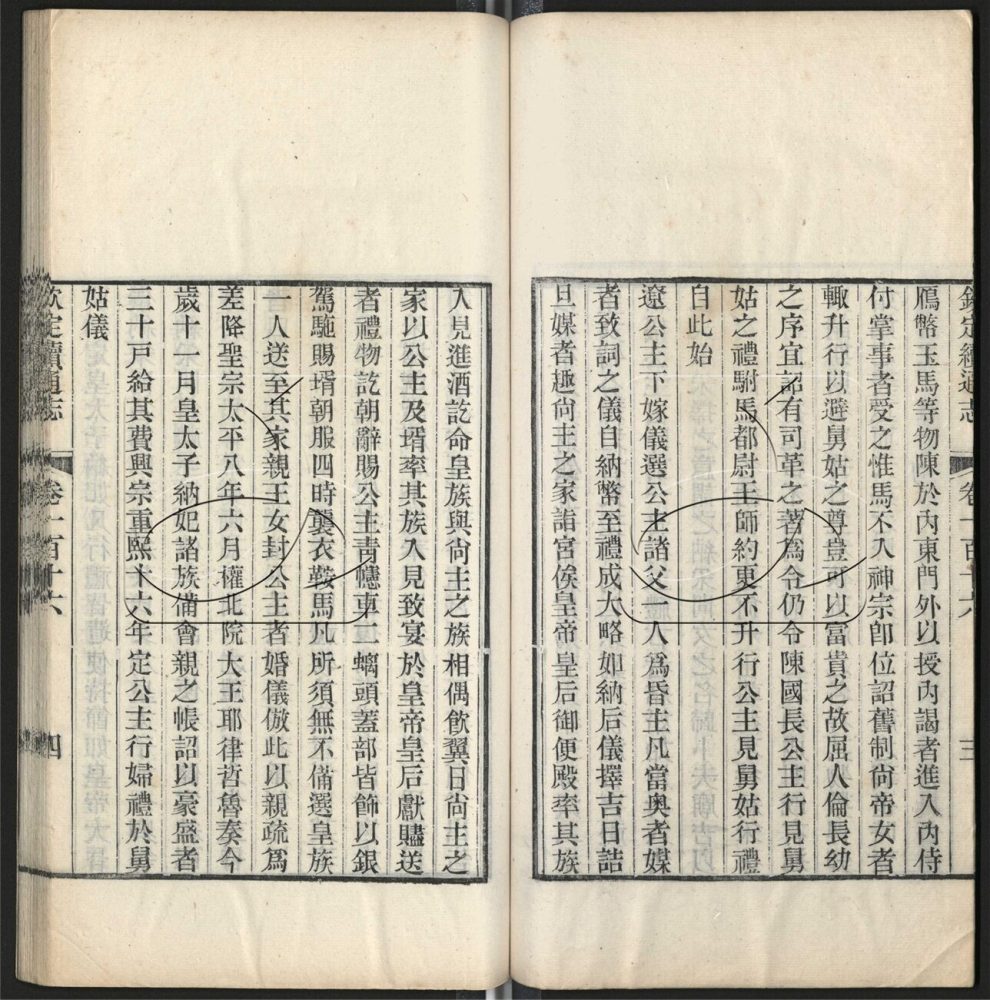 欽定續通志 卷一百十六 三
鴈幣玉馬等物陳於內東門外以授內謁者進入內侍
付掌事者受之惟馬不入神宗卽位詔舊制尙帝女者
輒升行以避舅姑之尊豈可以富貴之故屈人倫長幼
之序宜詔有司革之著爲令仍令陳國長公主行見舅
姑之禮駙馬都尉王師約更不升行公主見舅姑行禮
自此始
遼公主下嫁儀選公主諸父一人爲昏主凡當奧者媒
者致詞之儀自納幣至禮成大略如納后儀擇吉日詰
旦媒者趣尙主之家詣宮俟皇帝皇后御便殿率其族
入見進酒訖命皇族與尙主之族相偶飮翼日尙主之
家以公主及壻率其族入見致宴於皇帝皇后獻贐送
者禮物訖朝辭賜公主靑幰車二螭頭蓋部皆飾以銀
駕駞賜壻朝服四時襲衣鞍馬凡所須無不備選皇族
一人送至其家親王女封公主者婚儀倣此以親疏爲
差降聖宗太平八年六月權北院大王耶律哲魯奏今
歲十一月皇太子納妃諸族備會親之帳詔以豪盛者
三十戶給其費興宗重熙十六年定公主行婦禮於舅
姑儀
欽定續通志 卷一百十六 四